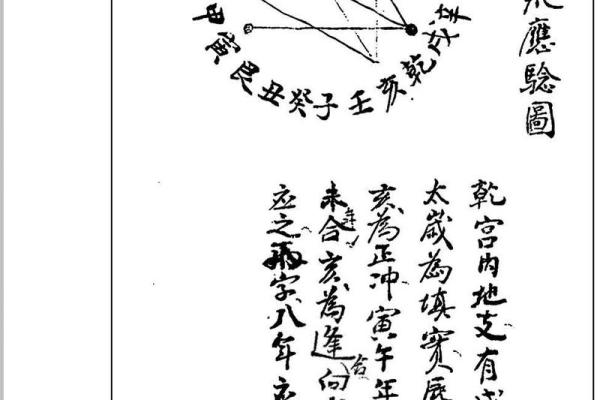 應驗圖
甲寅艮丑癸子壬亥乾戌辛
乾宫内地支有
太歲為填實辰
亥為正冲寅午年
未合亥為逢合向
应之字八年应